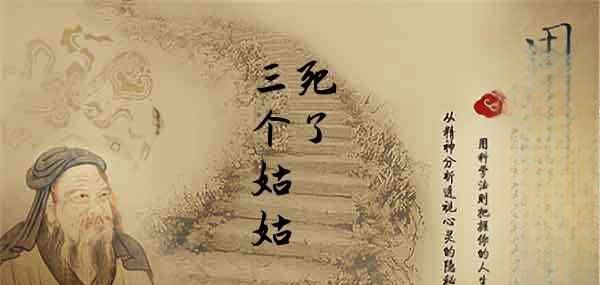 用科学法则把握你的人生
从精神分析透视心灵的隐秘
死了
三个姑姑